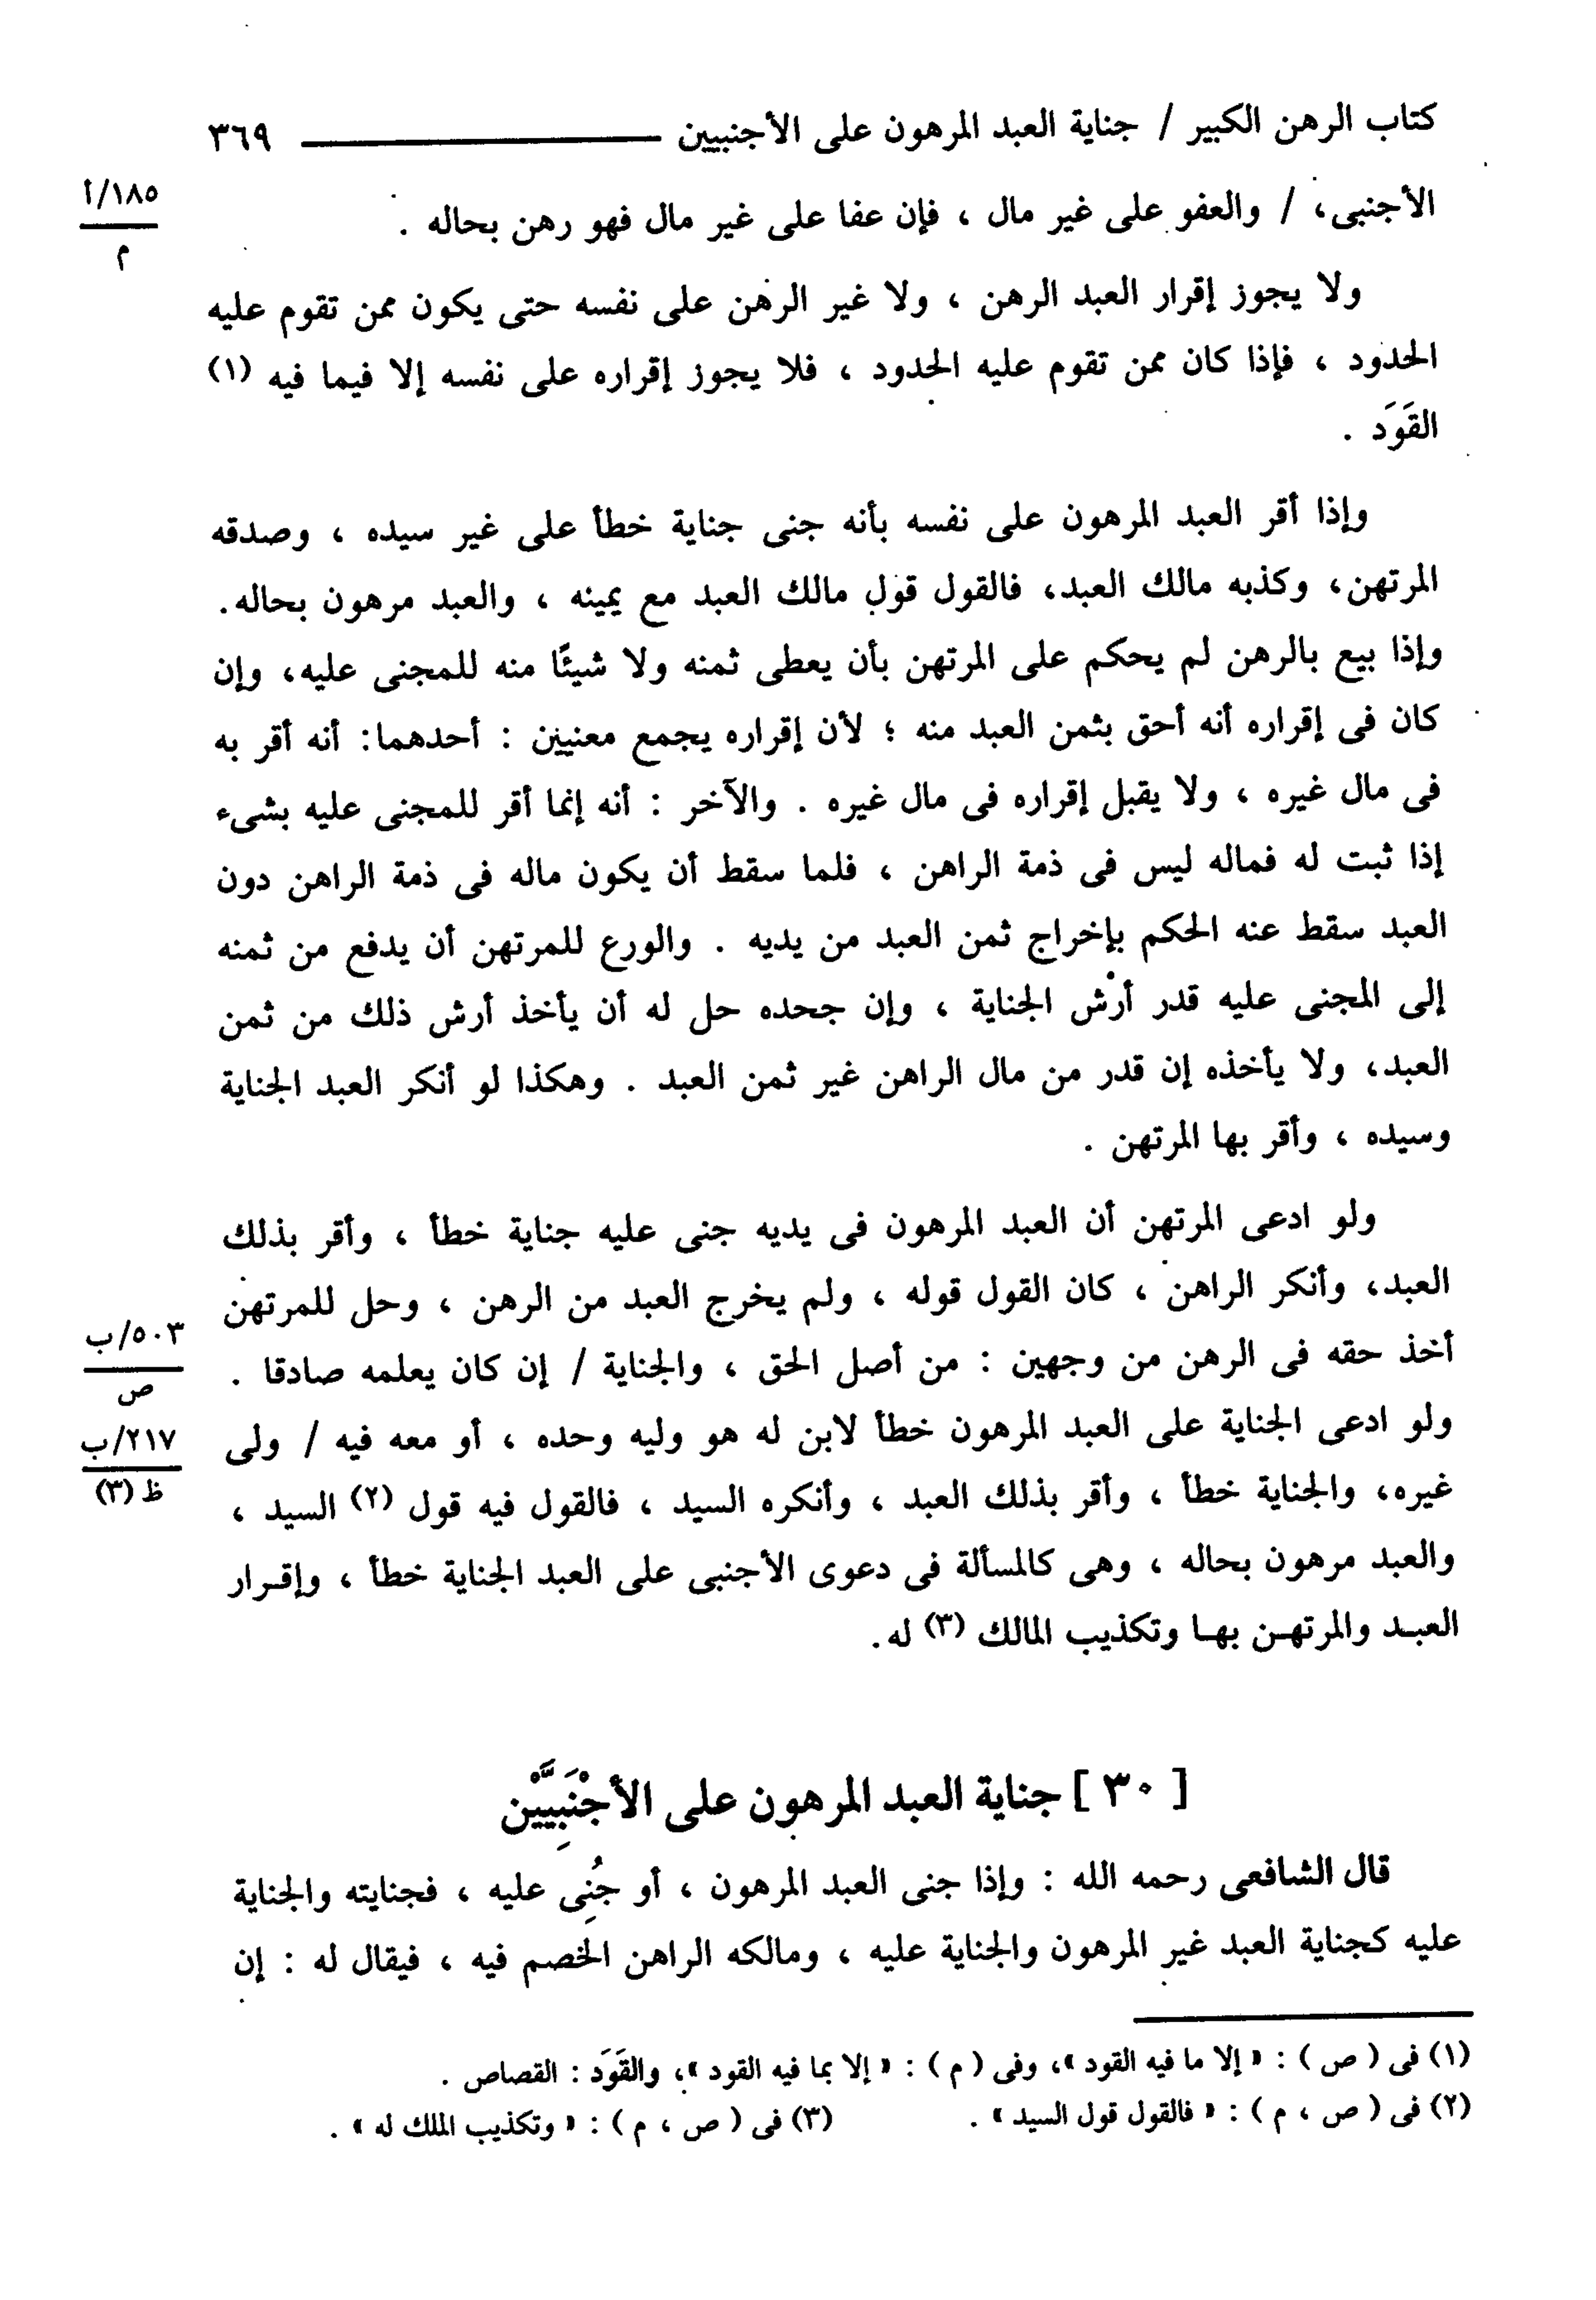 كتاب الرهن الكبير / جناية العبد المرهون على الأجنبيين ٣٦٩
الأجنبى، / والعفو على غير مال ، فإن عفا على غير مال فهو رهن بحاله .
١٨٥/أ
م
ولا يجوز إقرار العبد الرهن ، ولا غير الرهن على نفسه حتى يكون ممن تقوم عليه
الحدود ، فإذا كان ممن تقوم عليه الحدود ، فلا يجوز إقراره على نفسه إلا فيما فيه (١)
القَوَد .
وإذا أقر العبد المرهون على نفسه بأنه جنى جناية خطأ على غير سيده ، وصدقه
المرتهن، وكذبه مالك العبد، فالقول قول مالك العبد مع يمينه ، والعبد مرهون بحاله.
وإذا بيع بالرهن لم يحكم على المرتهن بأن يعطى ثمنه ولا شيئًا منه للمجنى عليه، وإن
كان فى إقراره أنه أحق بثمن العبد منه ؛ لأن إقراره يجمع معنيين : أحدهما: أنه أقر به
فى مال غيره ، ولا يقبل إقراره فى مال غيره . والآخر : أنه إنما أقر للمجنى عليه بشىء
إذا ثبت له فماله ليس فى ذمة الراهن ، فلما سقط أن يكون ماله فى ذمة الراهن دون
العبد سقط عنه الحكم بإخراج ثمن العبد من يديه . والورع للمرتهن أن يدفع من ثمنه
إلى المجنى عليه قدر أرش الجناية ، وإن جحده حل له أن يأخذ أرش ذلك من ثمن
العبد، ولا يأخذه إن قدر من مال الراهن غير ثمن العبد . وهكذا لو أنكر العبد الجناية
وسيده ، وأقر بها المرتهن .
ولو ادعى المرتهن أن العبد المرهون فى يديه جنى عليه جناية خطأ ، وأقر بذلك
العبد، وأنكر الراهن ، كان القول قوله ، ولم يخرج العبد من الرهن ، وحل للمرتهن
أخذ حقه فى الرهن من وجهين : من أصل الحق ، والجناية / إن كان يعلمه صادقا .
٥٠٣/ب
ص
ولو ادعى الجناية على العبد المرهون خطأ لابن له هو وليه وحده ، أو معه فيه / ولى
٢١٧/ب
ظ (٣)
غيره، والجناية خطأ ، وأقر بذلك العبد ، وأنكره السيد ، فالقول فيه قول (٢) السيد ،
والعبد مرهون بحاله ، وهى كالمسألة فى دعوى الأجنبى على العبد الجناية خطأ ، وإقـرار
العبـد والمرتهـن بهـا وتكذيب المالك (٣) له.
[ ٣٠ ] جناية العبد المرهون على الأجْنَبِيَّيْن
قال الشافعى رحمه الله : وإذا جنى العبد المرهون ، أو جُنِى عليه ، فجنايته والجناية
عليه كجناية العبد غير المرهون والجناية عليه ، ومالكه الراهن الخصم فيه ، فيقال له : إن
(١) فى ( ص ) : « إلا ما فيه القود »، وفى ( م ) : « إلا بما فيه القود »، والقَوَد : القصاص .
(٢) فى ( ص ، م ) : « فالقول قول السيد » . (٣) فى ( ص ، م ) : « وتكذيب الملك له » .